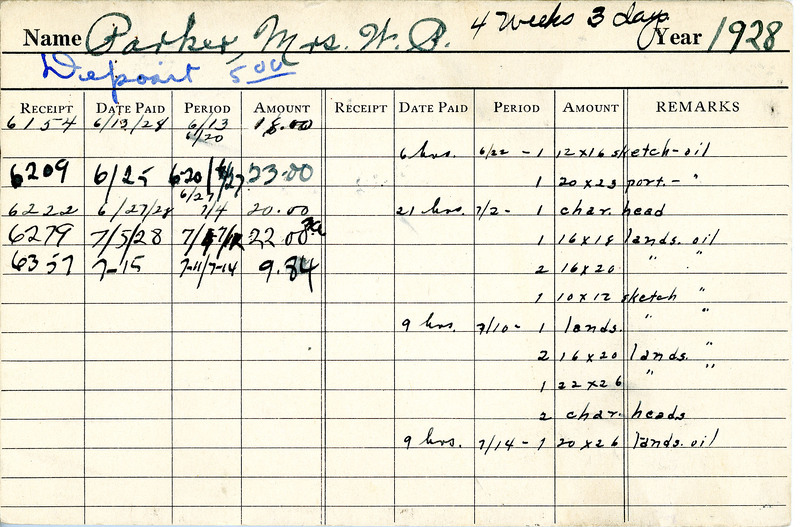 Name Parker, Mrs. W. P. 4 weeks 3 days Year 1928
Deposit 5 00
RECEIPT DATE PAID PERIOD AMOUNT RECEIPT DATE PAID PERIOD AMOUNT REMARKS
6154 6/13/28 6/13 18.00
6/20
6 hrs. 6/22 - 1 12x16 sketch-oil
6209 6/25 6-20/6/27 23.00 1 20x23 port. - "
6222 6/27/28 6/27 7/4 20.00 21 hrs. 7/2- 1 char. head
6279 7/5/28 22.00 1 16x18 lands. oil
6357 7-15 7-11/7-14 9.84 2 16x20 " "
1 10x12 sketch "
9 hrs. 7/10- 1 lands. " "
2 16x20 lands. "
1 22x26 " "
2 char. heads
9 hrs. 7/14 - 1 20x26 lands. oil